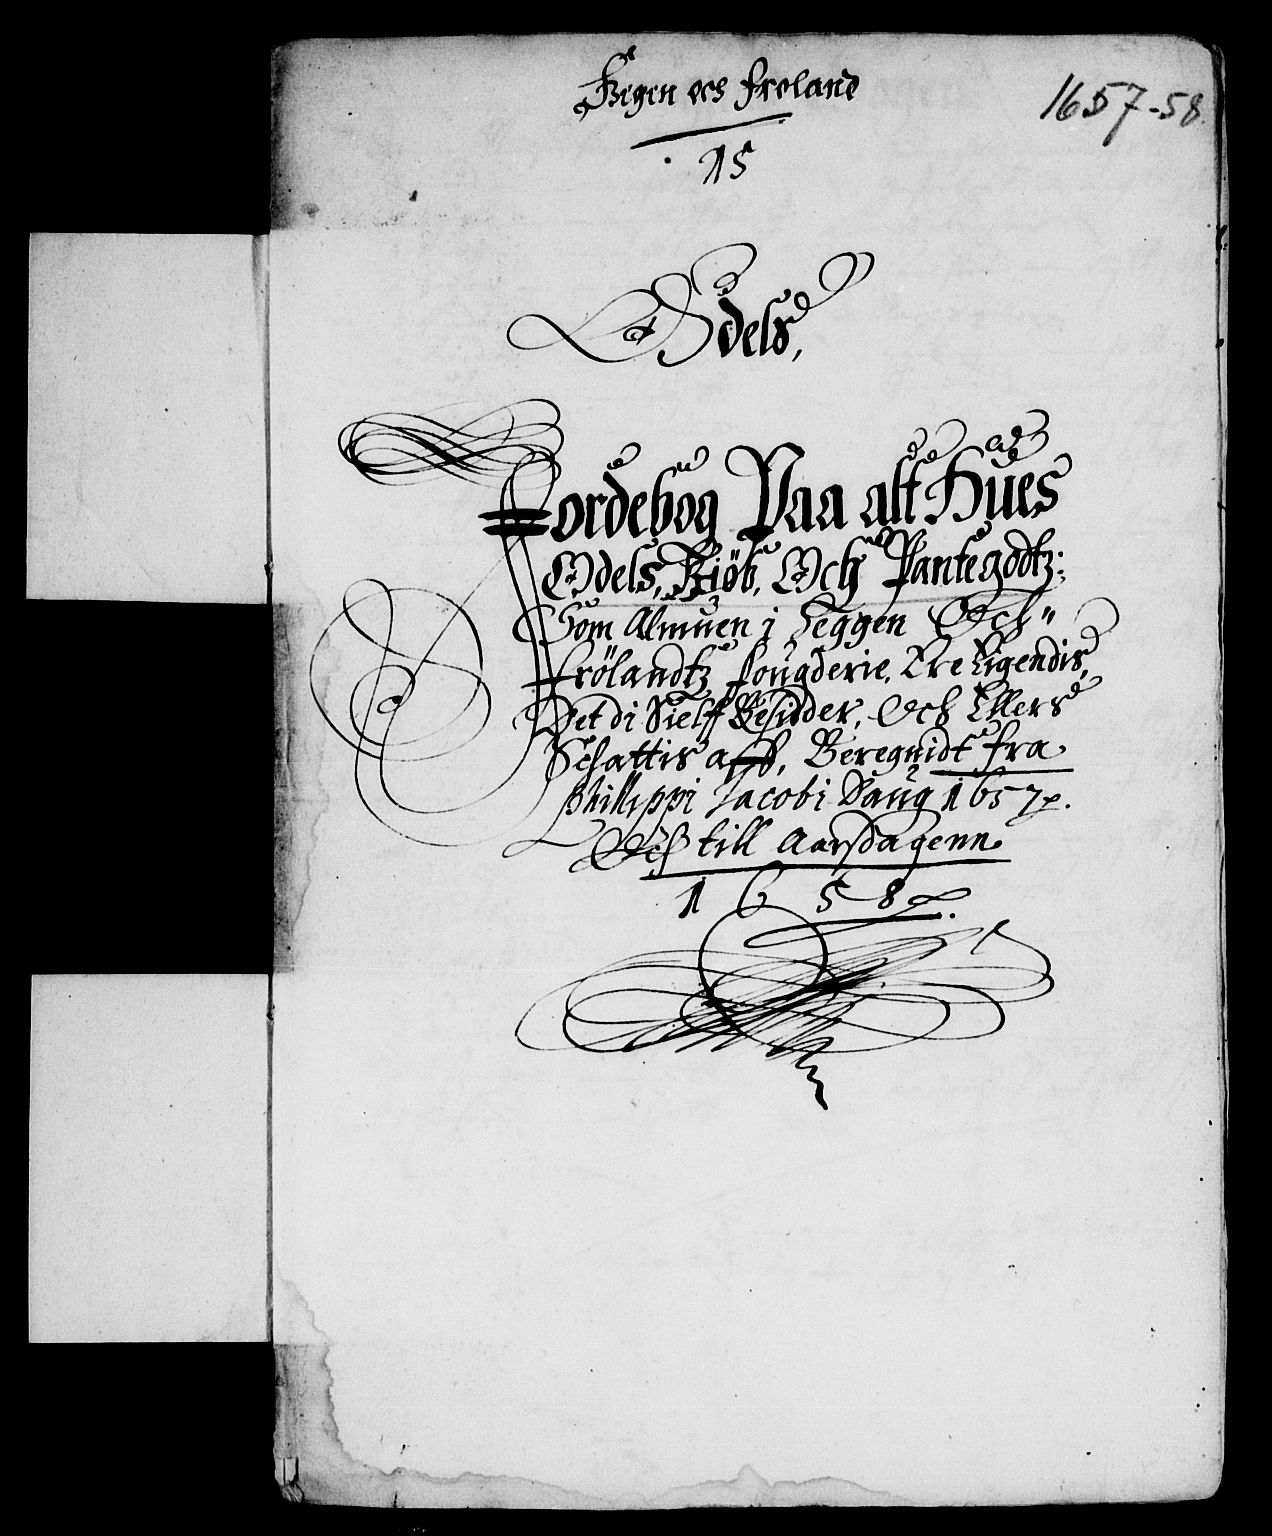 Heggen och Froland
1657-58
15
Odels,
Jordebog Paa alt Hues
Odels, Kiöb, Och Pantegodtz:
Som Almuen i Heggen Och
Frölandtz fougderie, Ere Eigendis,
Det di Sielff Besidder, Och Ellers
Schattis aff, Beregnidt fra
Philippi Jacobi Daug 1657
Och till Aarsdagenn
1658